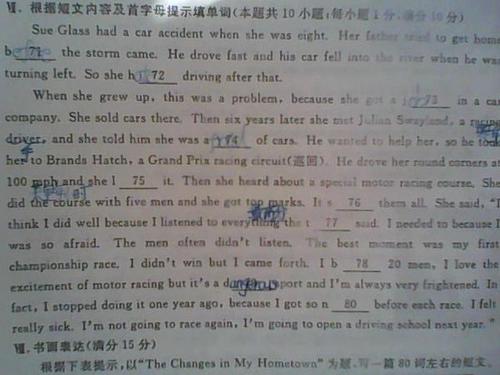 Ⅶ. 根据短文内容及首字母提示填单词(本题共 10 小题;每小题 1 分,满分 10 分)
Sue Glass had a car accident when she was eight. Her father tried to get home
b 71 the storm came. He drove fast and his car fell into the river when he was
turning left. So she h 72 driving after that.
When she grew up, this was a problem, because she got a j 73 in a car
company. She sold cars there. Then six years later she met Julian Swayland, a racing
driver, and she told him she was a 74 of cars. He wanted to help her, so he took
her to Brands Hatch, a Grand Prix racing circuit(巡回). He drove her round corners at
100 mph and she l 75 it. Then she heard about a special motor racing course. She
did the course with five men and she got top marks. It s 76 them all. She said, "I
think I did well because I listened to everything the t 77 said. I needed to because I
was so afraid. The men often didn't listen. The best moment was my first
championship race. I didn't win but I came forth. I b 78 20 men, I love the
excitement of motor racing but it's a dangerous sport and I'm always very frightened. In
fact, I stopped doing it one year ago, because I got so n 80 before each race. I felt
really sick. I'm not going to race again, I'm going to open a driving school next year."
Ⅷ. 书面表达(满分 15 分)
根据下表提示,以"The Changes in My Hometown"为题,写一篇 80 词左右的短文。